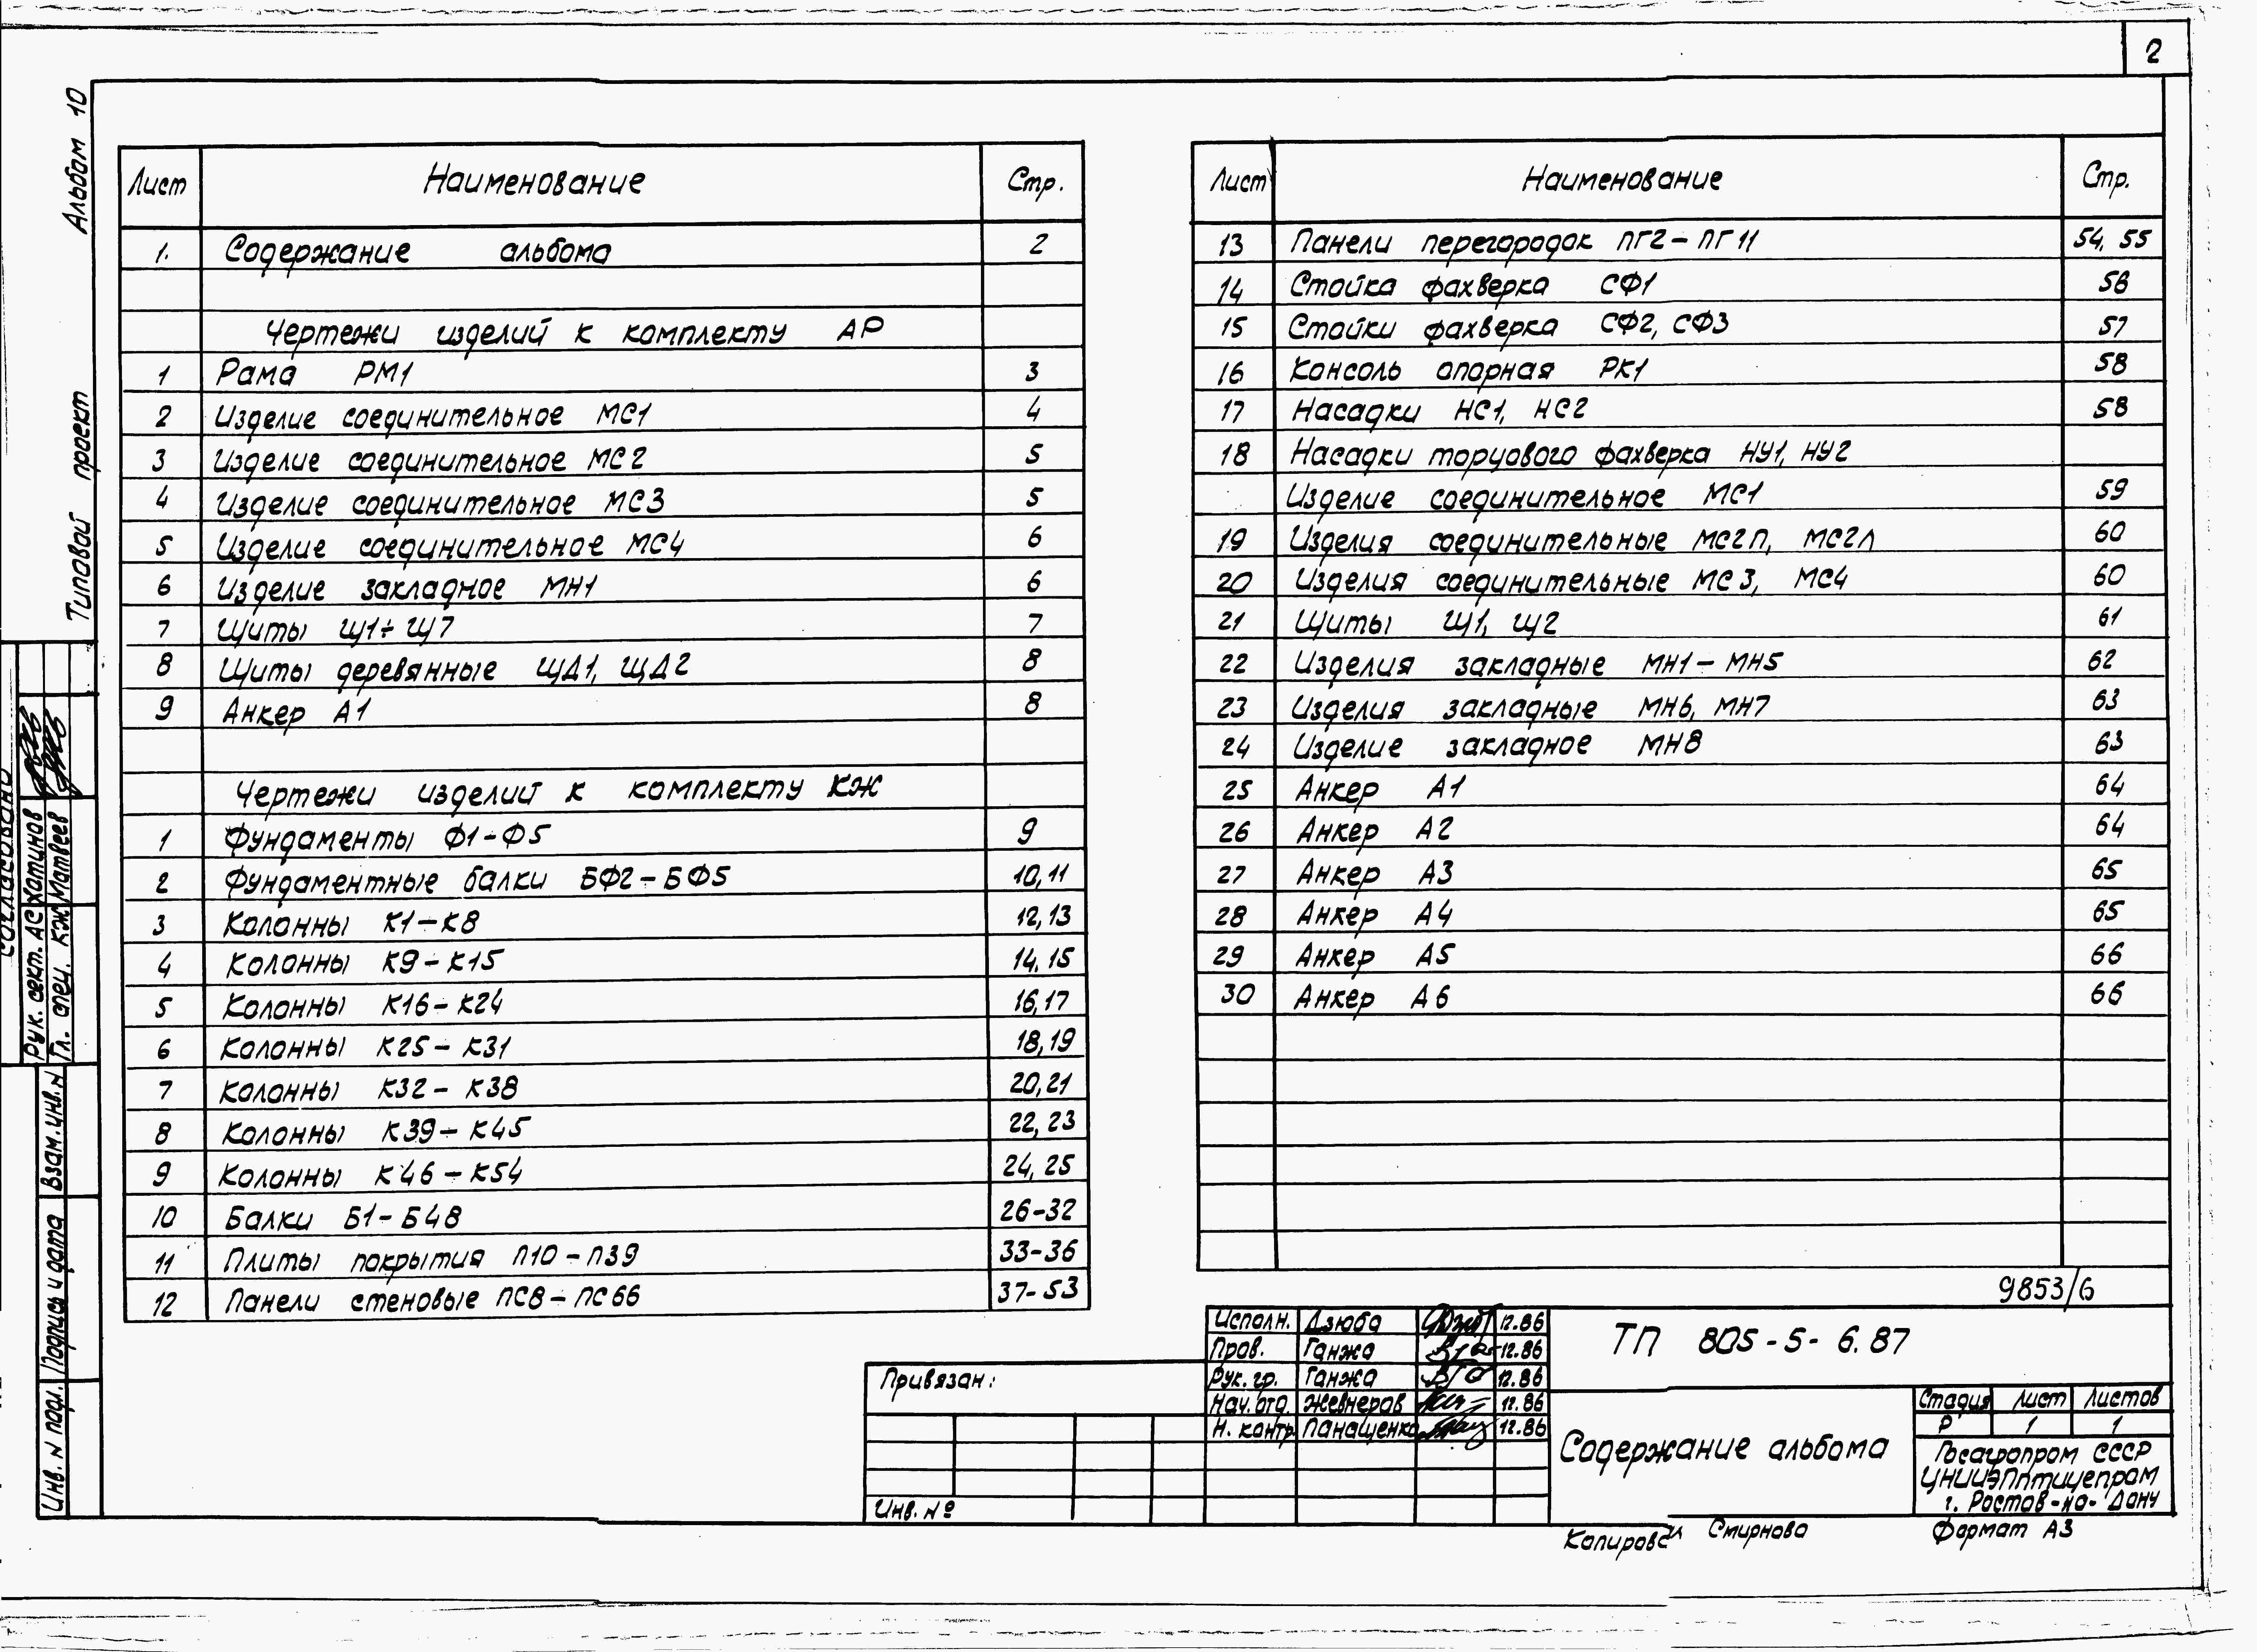 2
Типовой проект Альбом 10
Лист Наименование Стр.
1. Содержание альбома 2
Чертежи изделий к комплекту АР
1 Рама РМ1 3
2 Изделие соединительное МС1 4
3 Изделие соединительное МС2 5
4 Изделие соединительное МС3 5
5 Изделие соединительное МС4 6
6 Изделие закладное МН1 6
7 Щиты Щ1÷Щ7 7
8 Щиты деревянные ЩД1, ЩД2 8
9 Анкер А1 8
Чертежи изделий к комплекту КЖ
1 Фундаменты Ф1-Ф5 9
2 Фундаментные балки БФ2-БФ5 10,11
3 Колонны К1-К8 12,13
4 Колонны К9-К15 14,15
5 Колонны К16-К24 16,17
6 Колонны К25-К31 18,19
7 Колонны К32-К38 20,21
8 Колонны К39-К45 22,23
9 Колонны К46-К54 24,25
10 Балки Б1-Б48 26-32
11 Плиты покрытия П10-П39 33-36
12 Панели стеновые ПС8-ПС66 37-53
Лист Наименование Стр.
13 Панели перегородок ПГ2-ПГ11 54,55
14 Стойка фахверка СФ1 56
15 Стойки фахверка СФ2, СФ3 57
16 Консоль опорная РК1 58
17 Насадки НС1, НС2 58
18 Насадки торцового фахверка НУ1, НУ2
Изделие соединительное МС1 59
19 Изделия соединительные МС2П, МС2Л 60
20 Изделия соединительные МС3, МС4 60
21 Щиты Щ1, Щ2 61
22 Изделия закладные МН1-МН5 62
23 Изделия закладные МН6, МН7 63
24 Изделие закладное МН8 63
25 Анкер А1 64
26 Анкер А2 64
27 Анкер А3 65
28 Анкер А4 65
29 Анкер А5 66
30 Анкер А6 66
9853/6
Согласовано
Рук. сект. АС Хатинов
Гл. спец. КЖ Матвеев
Взам.инв.N
Подпись и дата
Инв. N подл.
Привязан:
Инв. №
Исполн. Дзюба 12.86
Пров. Ганжа 12.86
Рук. гр. Ганжа 12.86
Нач. отд. Жевнеров 12.86
Н. контр. Панащенко 12.86
ТП 805-5-6.87
Содержание альбома
Стадия Лист Листов
Р 1 1
Госагропром СССР
ЦНИИЭПптицепром
г. Ростов-на-Дону
Копировал Смирнова Формат А3